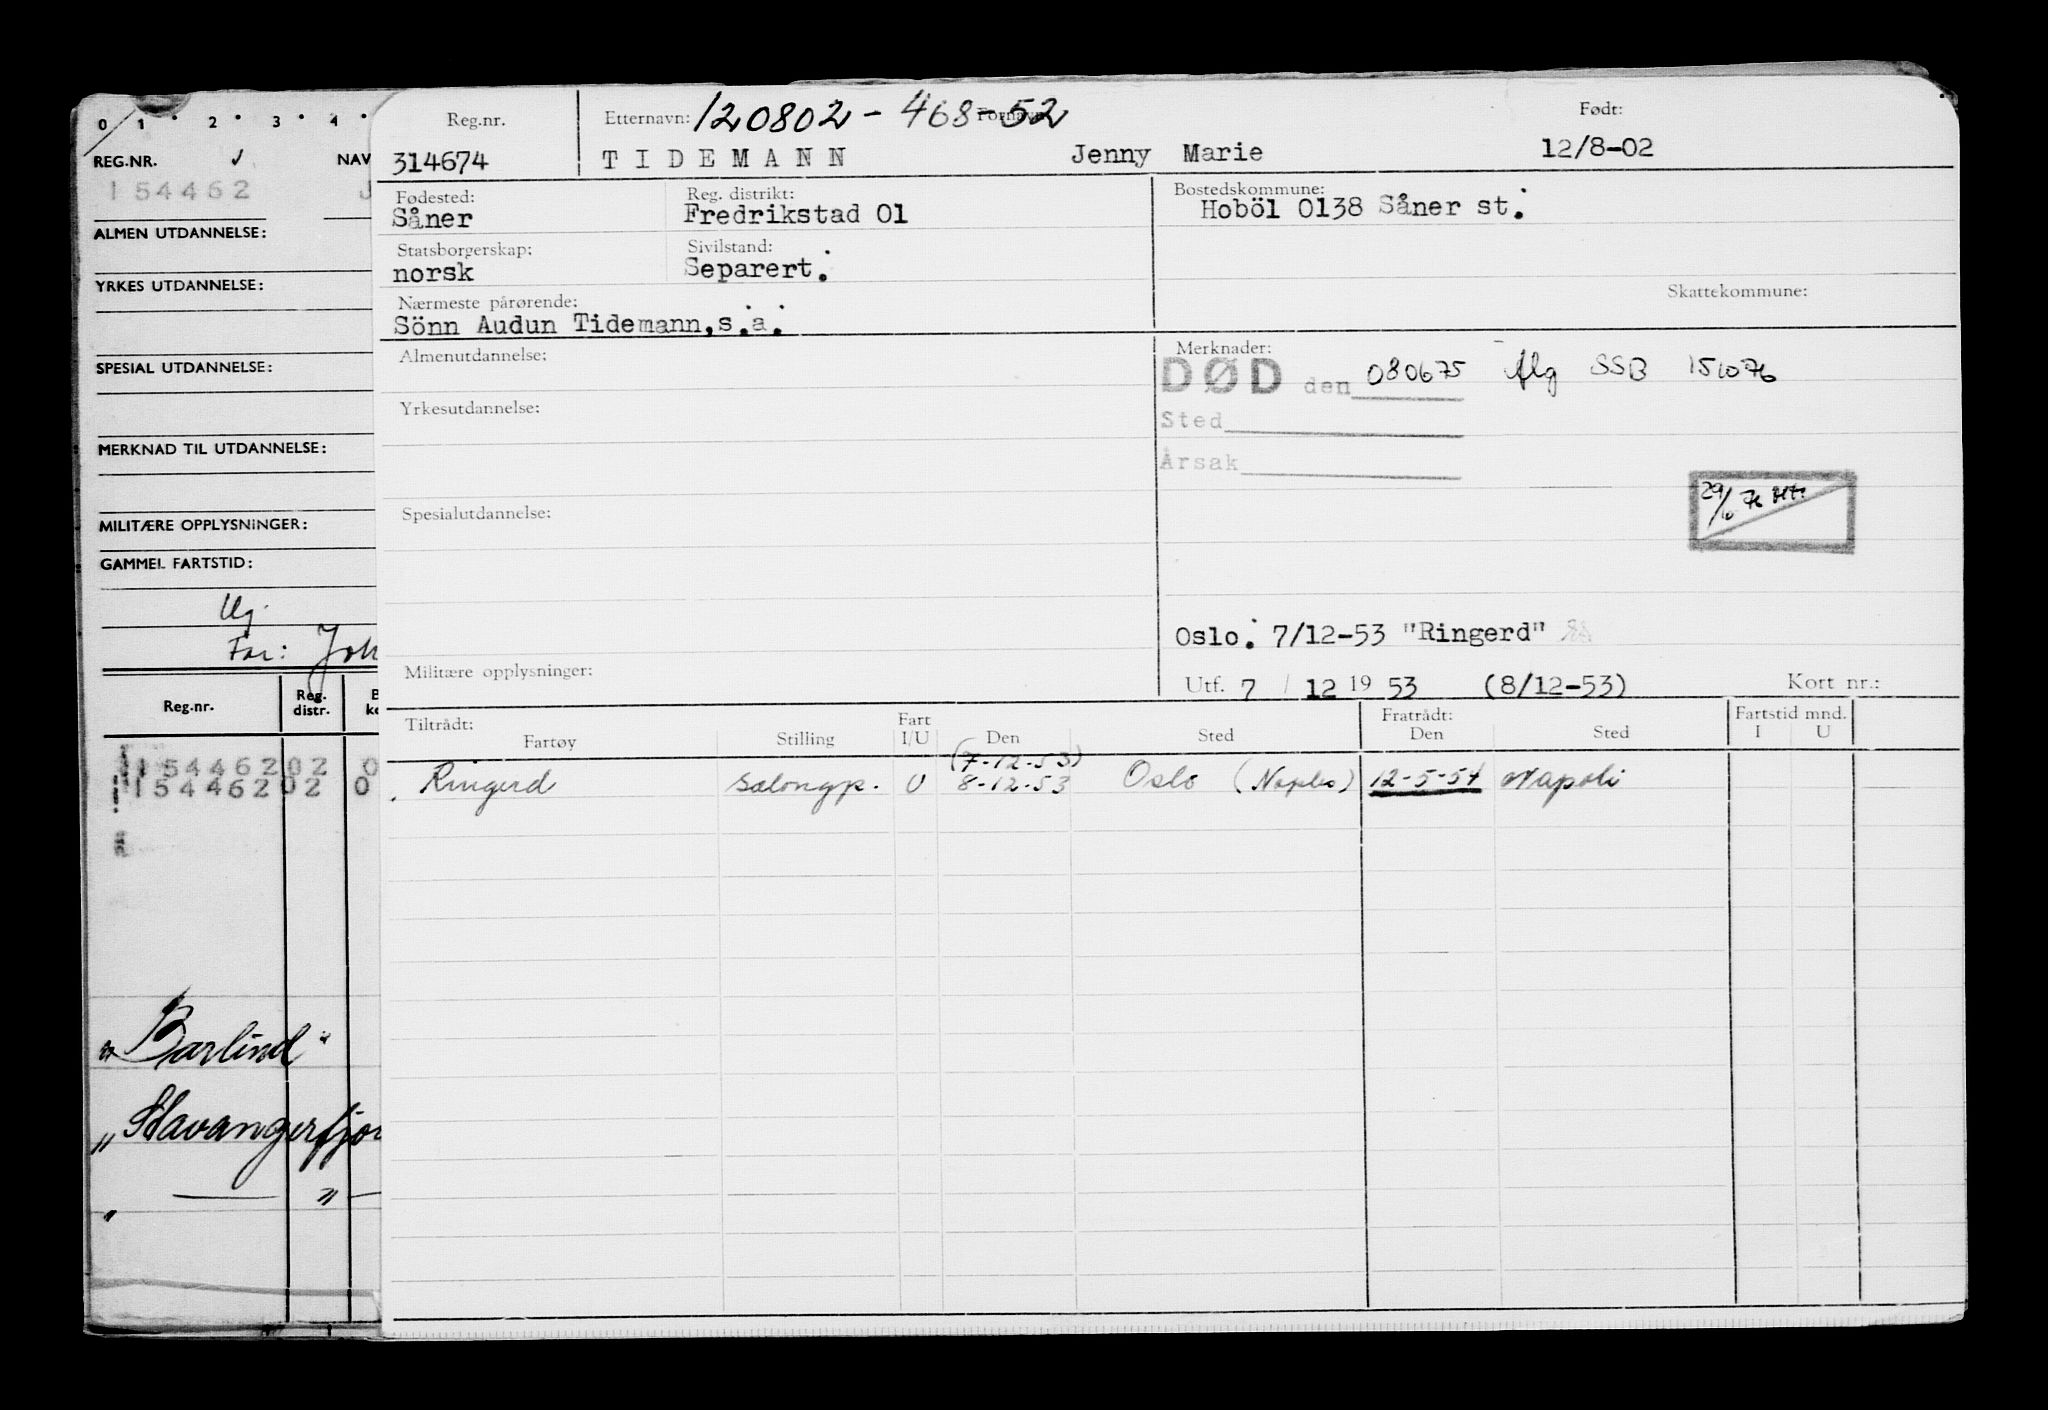 0 1 2 3 4
REG.NR. NAV
154462 J
ALMEN UTDANNELSE:
YRKES UTDANNELSE:
SPESIAL UTDANNELSE:
MERKNAD TIL UTDANNELSE:
MILITÆRE OPPLYSNINGER:
GAMMEL FARTSTID:
Ug.
Far: Joh
Reg.nr. Reg. distr.
154462 02 0
154462 02 0
"Barlind"
"Stavangerfjor
" — " —
Reg.nr. Etternavn: 120802 - 468-52 Fornavn: Født:
314674 TIDEMANN Jenny Marie 12/8-02
Fødested: Reg. distrikt: Bostedskommune:
Såner Fredrikstad 01 Hoböl 0138 Såner st.
Statsborgerskap: Sivilstand:
norsk Separert.
Skattekommune:
Nærmeste pårørende:
Sönn Audun Tidemann, s.a.
Almenutdannelse: Merknader:
DØD den 080675 flg SSB 151076
Yrkesutdannelse:
Sted
Årsak
29/10 76
Spesialutdannelse:
Oslo. 7/12-53 "Ringerd"
Militære opplysninger: Utf. 7 / 12 19 53 (8/12-53) Kort nr.:
Tiltrådt: Fart Fratrådt: Fartstid mnd.
Fartøy Stilling I/U Den Sted Den Sted I U
(7-12-53)
Ringerd salongp. U 8-12-53 Oslo (Naples) 12-5-54 Napoli